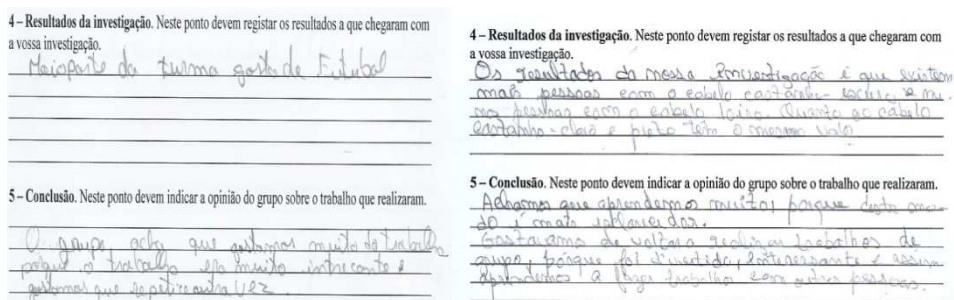 4 – Resultados da investigação. Neste ponto devem registar os resultados a que chegaram com
a vossa investigação.
Maioparte da turma gosta de Futubal
5 – Conclusão. Neste ponto devem indicar a opinião do grupo sobre o trabalho que realizaram.
O grupo acha que gostamos muito do trabalho
porque o trabalho era muito intrecante e
gostamos que repetice outra vez.
4 – Resultados da investigação. Neste ponto devem registar os resultados a que chegaram com
a vossa investigação.
Os resultados da nossa investigação é que existem
mais pessoas com o cabelo castanho-escuro e me-
nos pessoas com o cabelo loiro. Quanto ao cabelo
castanho-claro e preto têm o mesmo valo
5 – Conclusão. Neste ponto devem indicar a opinião do grupo sobre o trabalho que realizaram.
Achamos que aprendemos muito, porque deste mo-
do é mais
Gostavamo de voltar a realizar trabalhos de
grupo, porque foi divertido, interessante e assim
aprendemos a fazer trabalho com outras pessoas.